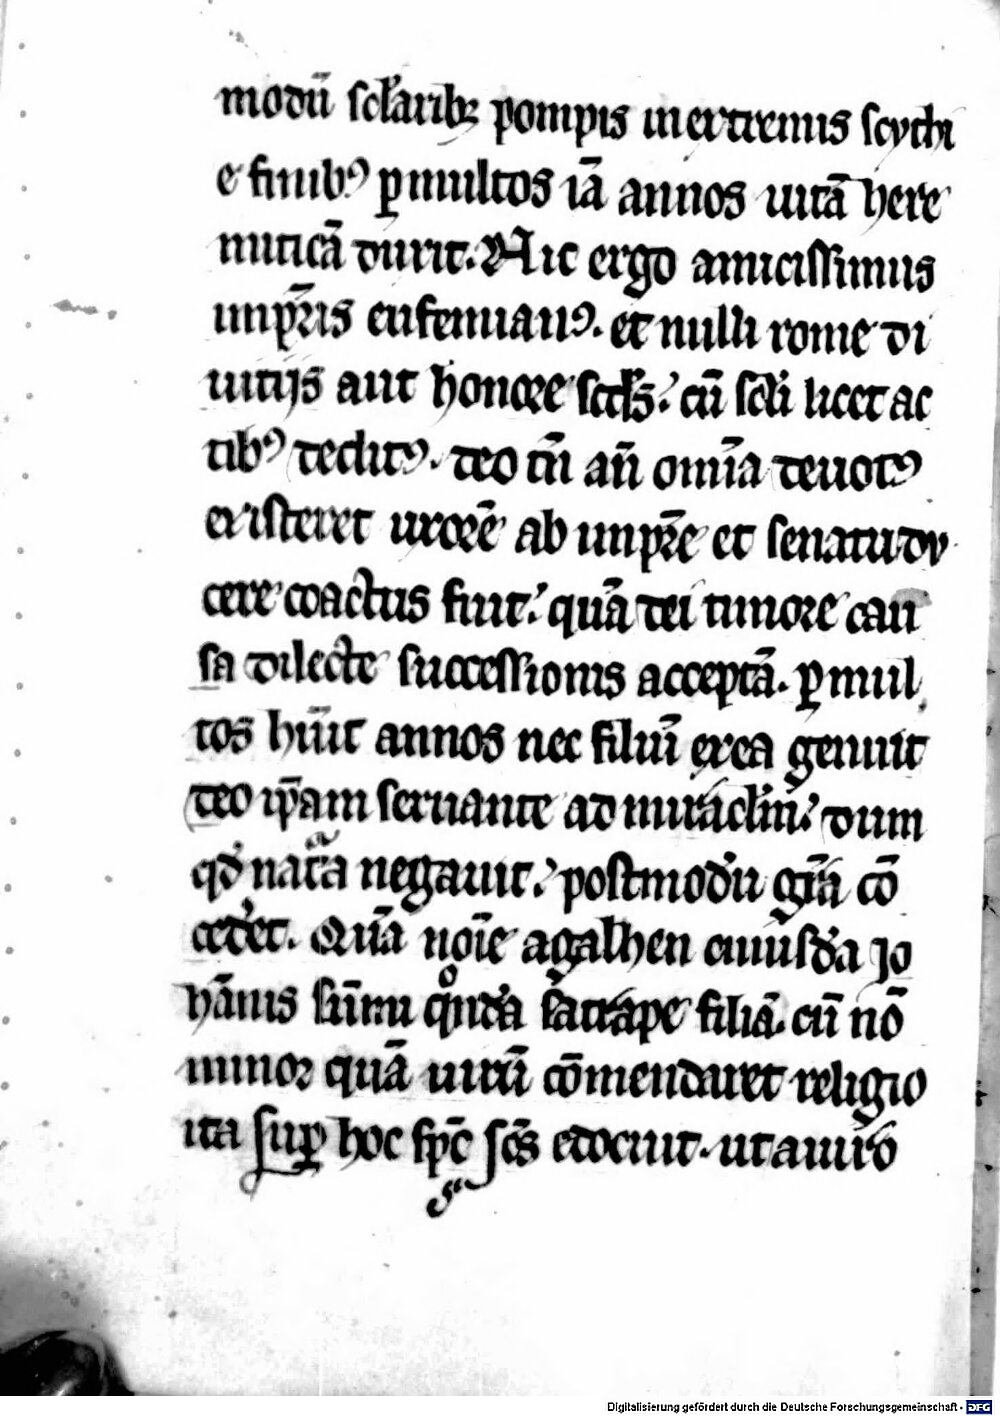 modū scl̄aribꝫ pompis in extremis scythi
e finibꝰ ꝑ multos iā annos uitā here
miticā duxit. Hic ergo amicissimus
impr̄is eufemianꝰ. et nulli rome di
uitijs aut honore scd̄s. cū scl̄i licet ac
tibꝰ deditꝰ. deo tm̄ an̄ omīa deuotꝰ
existeret uxorē ab impr̄e et senatu du
cere coactus fiut. quā dei timore cau
sa dilecte successionis acceptā. ꝑ mul
tos hūit annos nec filiū ex ea genuit
deo ip̄am seruante ad miraclm̄. dum
qd̓ nat̄a negauit. postmodū gr̄a cō
cederet. Quā noīe agalhen cuiusdā Jo
hānis
filiā. cū nō
minor quā uirū cōmendaret religio
ita suꝑ hoc sp̄c sc̄s edocuit. ut a uiro